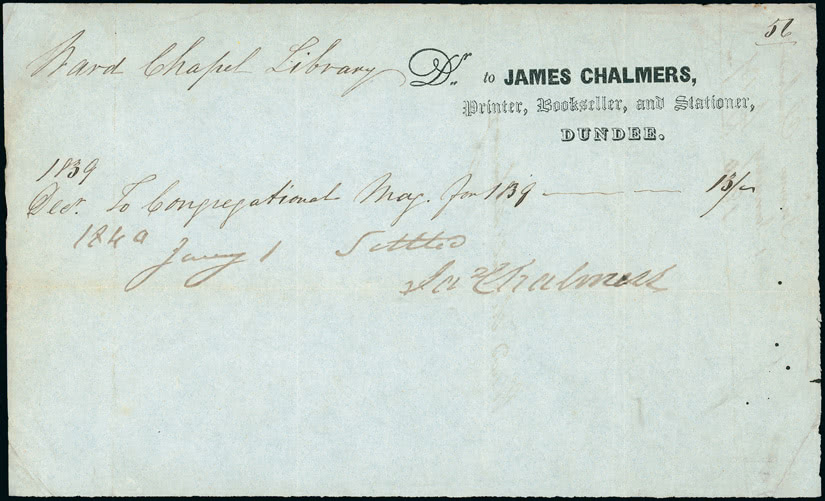 56
Ward Chapel Library Dr. to JAMES CHALMERS,
Printer, Bookseller, and Stationer,
DUNDEE.
1839
Decr. To Congregational Mag. for 1839 — — — 13/-
1840 Jany 1 Settled
Jas Chalmers